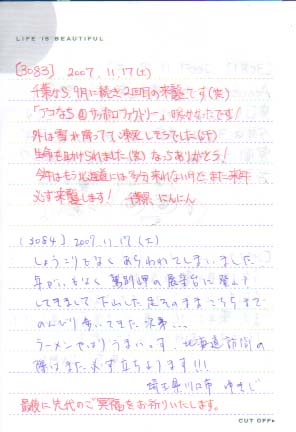 LIFE IS BEAUTIFUL
[3083] 2007. 11.17(土)
千葉から、9月に続き2回目の来襲です(笑)
外は雪が降っていて凍死しそうでした(汗)
生命を助けられました(笑) ありがとう!
今年はもう北海道には多分来れないけど、また来年
必ず来襲します! 千葉県、にんにん
[3084] 2007. 11.17 (土)
しょうこりもなくあらわれてしまいました
年がいもなく 岬の展望台に登山
してきまして 下山した足そのままこちらまで
のんびり歩いてきた次第...
ラーメンやはりうまいっす、北海道訪問の
際はまた必ず立ちよります!!!
埼玉県川口市
最後に先代のご冥福をお祈りいたします。
CUT OFF